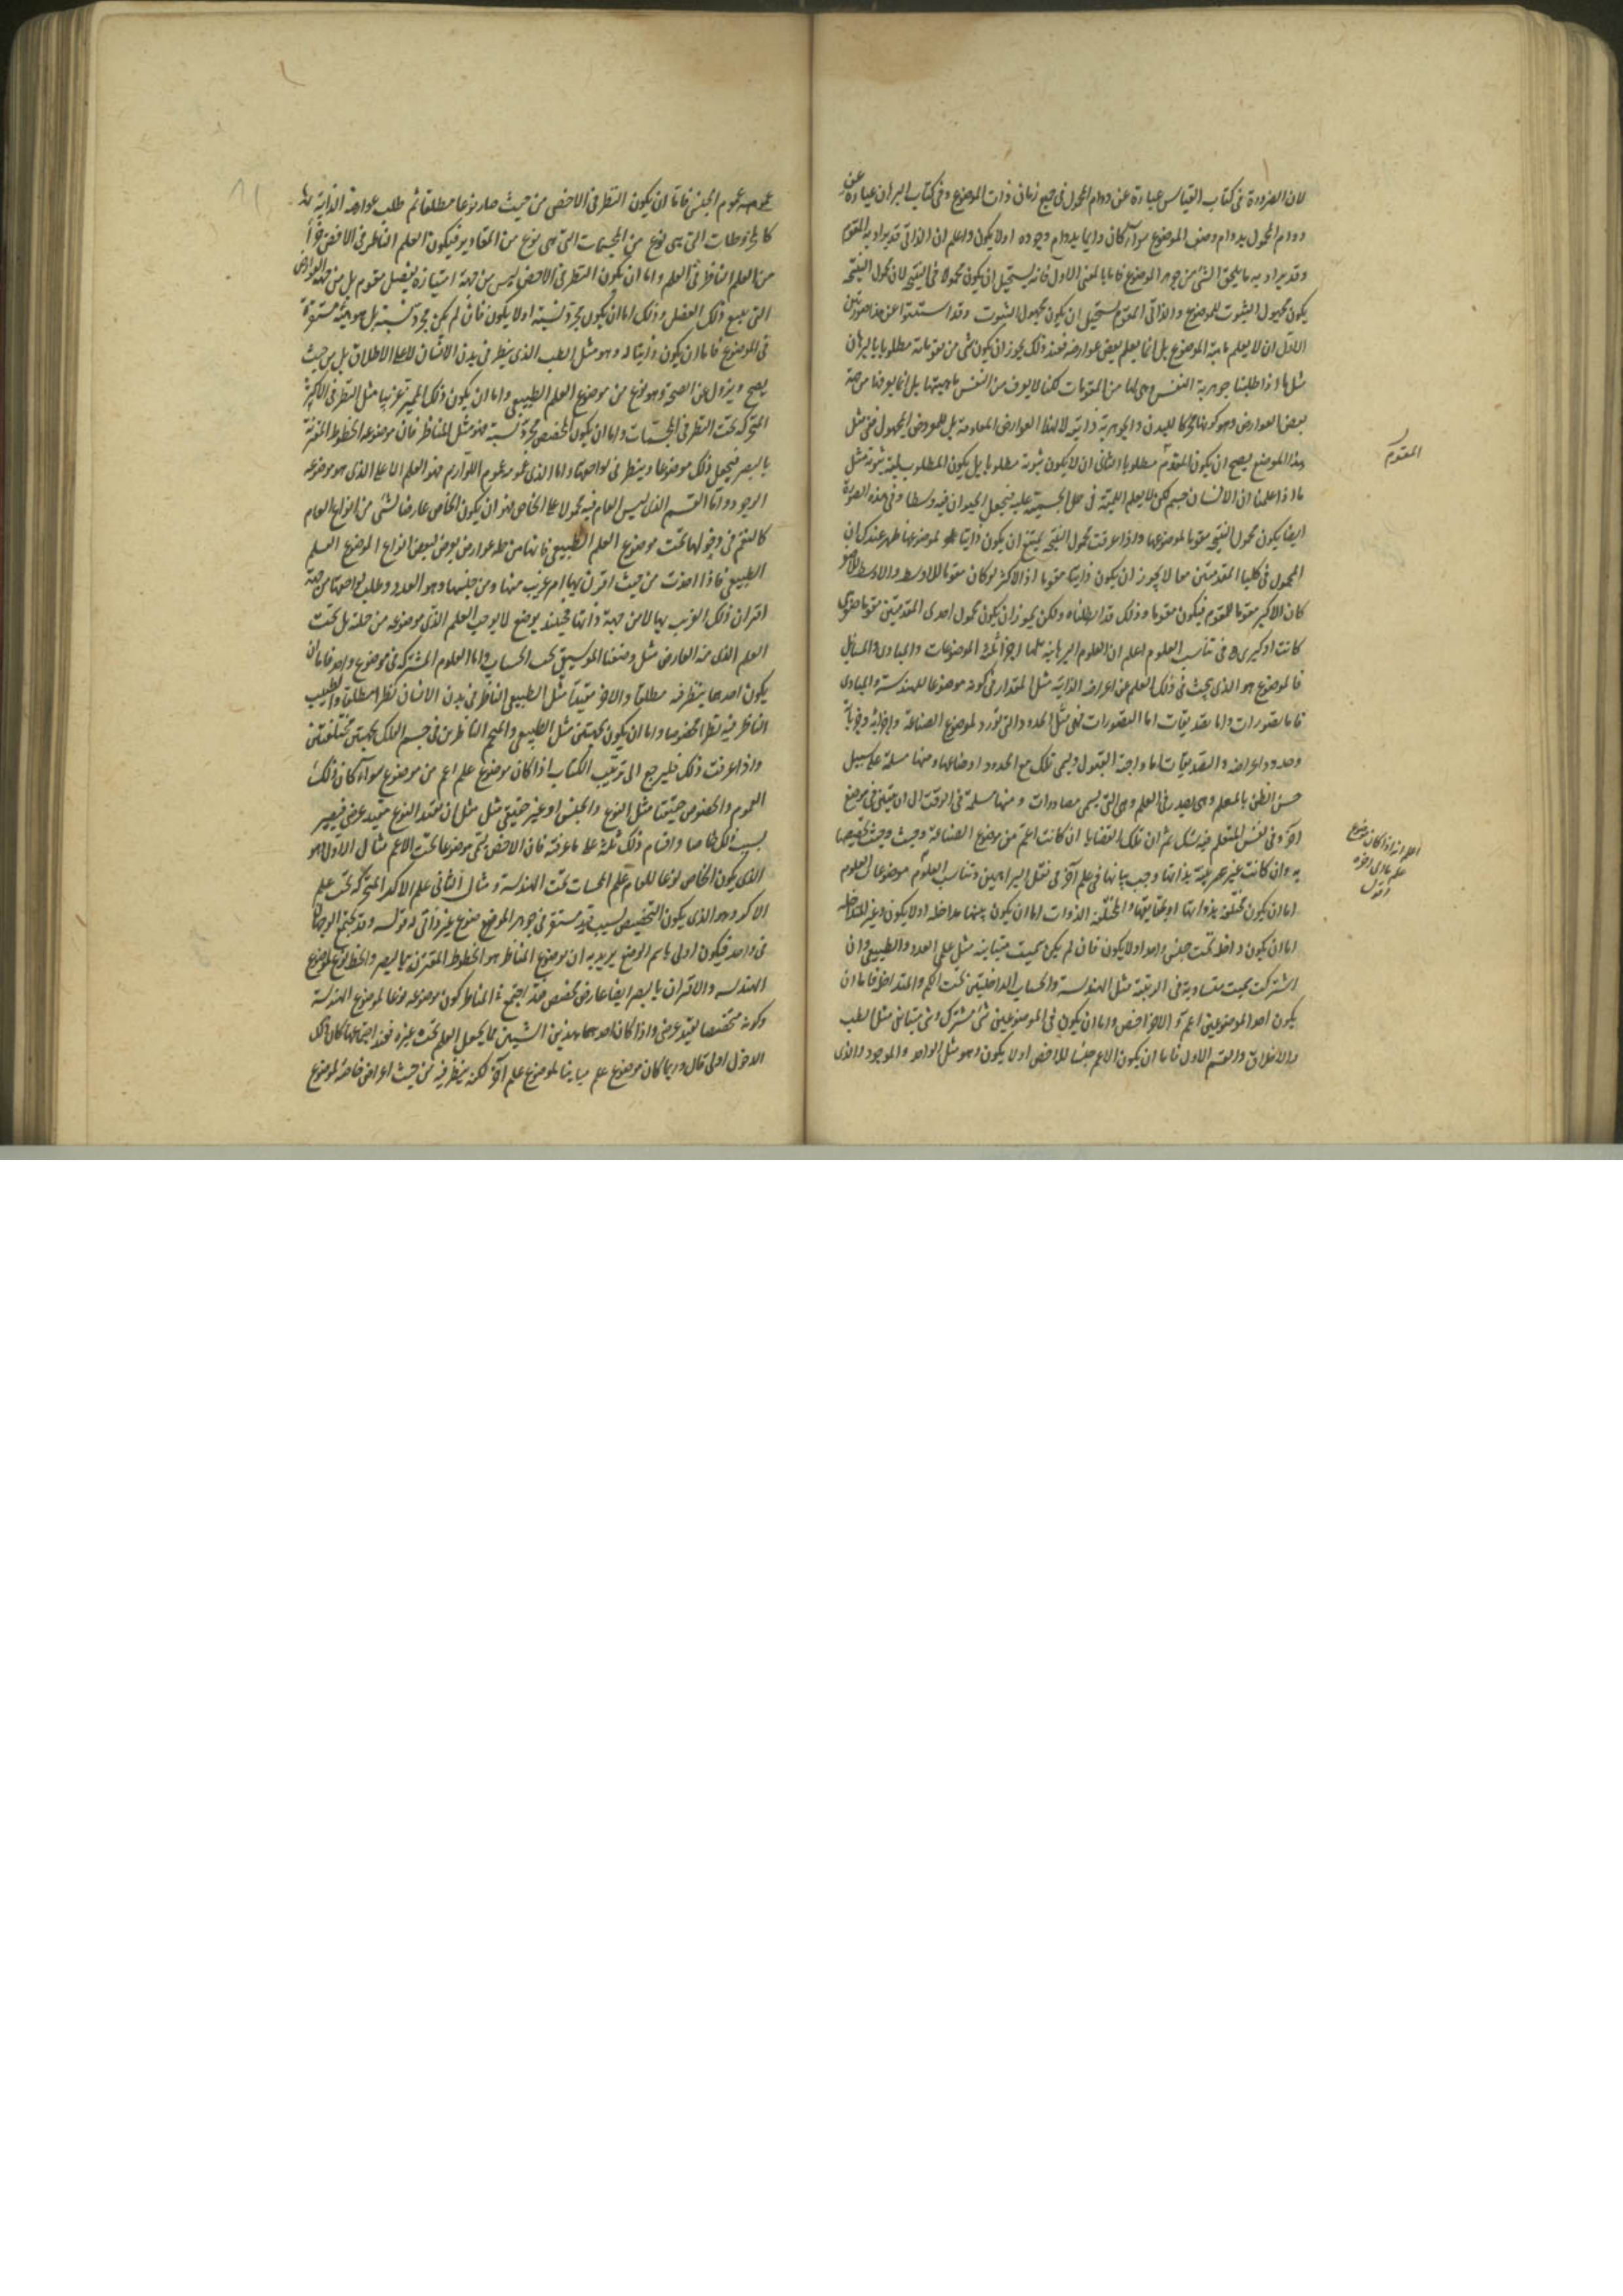 لان الضرورة فى كتاب القياس عبارة عن دوام المحمول فى جميع زمان ذات الموضوع وفى كتاب البرهان عبارة عن
دوام المحمول بدوام وصف الموضوع سواء كان دايما بدوام وجوده اولا يكون واعلم ان الذاتى قد يراد به المقوم
وقد يراد به ما يلحق الشئ من جوهر الموضوع فاما بالمعنى الاول فانه يستحيل ان يكون محمولا فى النتيجة لان محمول النتيجة
يكون مجهول الثبوت للموضوع والذاتى المقوم يستحيل ان يكون مجهول الثبوت وقد استثنوا عن هذا صورتين
الاول ان لا يعلم ماهية الموضوع بل انما يعلم بعض عوارضه فعند ذلك يجوز ان يكون شئ من مقوماته مطلوبا بالبرهان
مثل ما اذا طلبنا جوهرية النفس وهى لها من المقومات لكنا لا نعرف من النفس ماهيتها بل انما نعرفها من جهة
بعض العوارض وهو كونها محركا للبدن والجوهرية ذاتية لا لهذا العوارض المعلومة بل للمعروض المجهول ففى مثل
هذا الموضع يصح ان يكون المقوم مطلوبا الثانى ان لا يكون ثبوته مطلوبا بل يكون المطلوب لمية ثبوته مثل
ما اذا علمنا ان الانسان جسم لكن لا يعلم اللمية فى حمل الجسمية عليه فيجعل الحيوان فيه وسطا وفى هذه الصورة
ايضا يكون محمول النتيجة مقوما لموضوعها واذا عرفت محمول النتيجة يمتنع ان يكون ذاتيا لموضوعها ظهر عندك ان
المحمول فى كلتا المقدمتين معا لا يجوز ان يكون ذاتيا مقوما اذ الاكبر لو كان مقوما للاوسط والاوسط للاصغر
كان الاكبر مقوما للمقوم فيكون مقوما وذلك قد ابطلناه ولكن يجوز ان يكون محمول احدى المقدمتين مقوما صغرى
كانت او كبرى فى تناسب العلوم اعلم ان العلوم البرهانية لها اجزا ثلثة الموضوعات والمبادى والمسايل
فالموضوع هو الذى يبحث فى ذلك العلم عن اعراضه الذاتية مثل المقدار فى كونه موضوعا للهندسة والمبادى
فاما تصورات واما تصديقات اما التصورات فهى مثل الحدود التى تورد لموضوع الصناعة واجزائه وجزياته
وحدود اعراضه والتصديقات اما واجبة القبول ويسمى تلك مع الحدود اوضاعا ومنها مسلمة على سبيل
حسن الظن بالمعلم وهى يصدر فى العلم وهى التى يسمى مصادرات ومنها مسلمة فى الوقت الى ان يتبين فى موضع
اخر وفى نفس المتعلم فيه شك ثم ان تلك القضايا ان كانت اعم من موضوع الصناعة وجب تخصيصها
به وان كانت غير بينة بذاتها وجب بيانها فى علم اخر فى نقل البراهين وتناسب العلوم موضوعات العلوم
اما ان يكون مختلفة بذواتها او والمختلفة الذوات اما ان يكون بينها مداخلة اولا يكون وغير المتداخلة
اما ان يكون داخلة تحت جنس واحد اولا يكون فان لم يكن سميت متباينة مثل علمى العدد والطبيعى وان
اشتركت سميت متساوية فى الرتبة مثل الهندسة والحساب الداخلتين تحت الكم والمتداخلة فاما ان
يكون احد الموضوعين اعم والاخر اخص واما ان يكون فى الموضوعين شئ مشترك وشئ متباين مثل الطب
والاخلاق والقسم الاول فاما ان يكون الاعم جنسا للاخص اولا يكون وهو مثل الواحد والموجود والذى
المقوم
اعلم انه اذا كان موضوع
علم
اقول
عمومه عموم الجنس فاما ان يكون النظر فى الاخص من حيث صار نوعا مطلقا ثم طلب عوارضه الذاتية له
كالمخروطات التى هى نوع من المجسمات التى هى نوع من المقادير فيكون العلم الناظر فى الاخص جزأ
من العلم الناظر فى العلم واما ان يكون النظر فى الاخص ليس من جهة امتيازه بفصل مقوم بل من جهة العوارض
التى يتبع ذلك الفصل وذلك اما ان يكون مجرد نسبة اولا يكون فان لم يكن مجرد نسبة بل هو هيئة مستقرة
فى الموضوع فاما ان يكون ذاتيا له وهو مثل الطب الذى ينظر فى بدن الانسان لا على الاطلاق بل من حيث
يصح ويزول عن الصحة وهو نوع من موضوع العلم الطبيعى واما ان يكون ذلك المميز غريبا مثل النظر فى الاكر
المتحركة تحت النظر فى المجسمات واما ان يكون المخصص مجرد نسبة فهو مثل المناظر فان موضوعه الخطوط المقترنة
بالبصر فيجعل ذلك موضوعا وينظر فى لواحقها واما الذى عمومه عموم اللوازم فهو العلم الاعلى الذى هو موضوعه
الموجود واما القسم الذى ليس العام فيه محمولا على الخاص فهو ان يكون الخاص عارضا لشئ من انواع العام
كالنغم فى دخولها تحت موضوع العلم الطبيعى فانها من جملة عوارض يعرض لبعض انواع الموضوع العلم
الطبيعى فاذا اخذت من حيث اقترن بها امر غريب منها ومن جنسها وهو العدد وطلب لواحقها من جهة
اقتران ذلك الغريب بها لا من جهة ذاتها فحينئذ يوضع لا يوجب العلم الذى موضوعه من جملته بل تحت
العلم الذى منه العارض مثل وضعنا الموسيقى تحت الحساب واما العلوم المشتركة فى موضوع واحد فاما ان
يكون احدهما ينظر فيه مطلقا والاخر مقيدا مثل الطبيعى الناظر فى بدن الانسان نظرا مطلقا والطبيب
الناظر فيه نظرا مخصوصا واما ان يكون بجهتين مثل الطبيعى والمنجم الناظرين فى جسم الفلك بجهتين مختلفتين
واذا عرفت ذلك فليرجع الى ترتيب الكتاب اذا كان موضوع علم اعم من موضوع سواء كان ذلك
العموم والخصوص حقيقيا مثل النوع والجنس او غير حقيقى مثل ان يقيد النوع بقيد عرضى فيصير
بسبب ذلك خاصا واقسام ذلك ثلثة على ما عرفته فان الاخص يسمى موضوعا تحت الاعم مثال الاول هو
الذى يكون الخاص نوعا للعام علم المجسمات تحت الهندسة ومثال الثانى علم الاكر المتحركة تحت علم
الاكر وهو الذى يكون التخصيص بسبب قيد مستقر فى جوهر الموضوع منوع غير ذاتى وقوله وقد يجتمع الوجهان
فى واحد فيكون اولى باسم الموضوع يريد به ان موضوع المناظر هو الخطوط المقترنة بالبصر والخط نوع لموضوع
الهندسه والاقتران بالبصر ايضا عارض مخصص فقد اجتمع فى المناظر كون موضوعه نوعا لموضوع الهندسة
وكونه مخصصا بقيد عرضى واذا كان احدهما بهذين الشيئين مما يجعل العلم تحت غيره فعند اجتماعهما كان ذلك
الدخول اولى قال وربما كان موضوع علم مباينا لموضوع علم اخر لكنه ينظر فيه من حيث اعراض خاصة لموضوع